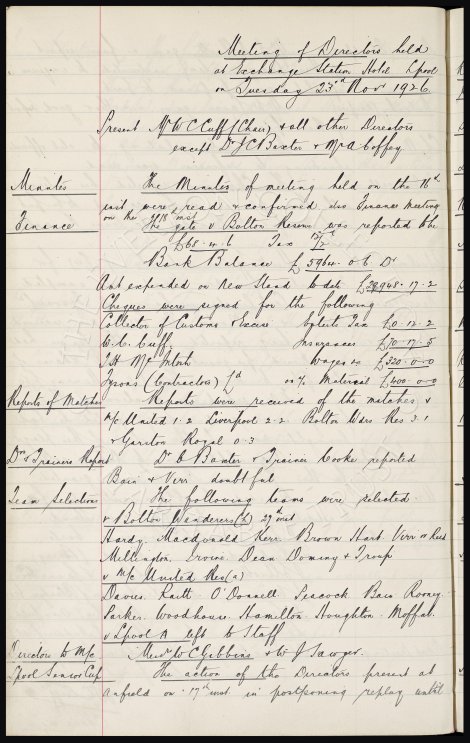 Meeting of Directors held
at Exchange Station Hotel L'pool
on Tuesday 23rd Nov 1926.
Present Mr W C Cuff (Chair) & all other Directors
except Dr J C Baxter & Mr A Coffey.
Minutes
The Minutes of meeting held on the 16th
inst were read & confirmed also Finance meeting
on the inst
Finance
The gate v Bolton Reserves was reported to be
£68.4.6 Tax 12/2d
Bank Balance £3964.0.6 Dr
Amt expended on New Stand to date £28948.17.2
Cheques were signed for the following
Collector of Customs & Excise Tax £0.12.2
W. C. Cuff, Insurances £70.17.5
T. H. McIntosh Wages &c £320.0.0
Tysons (Contractors) Ld on % Material £400.0.0
Reports of Matches
Reports were received of the matches v
M/c United 1.2 Liverpool 2.2 Bolton Wdrs Res 3.1
& Garston Royal 0.3
Drs & Trainers Report
Dr Baxter & Trainer Cooke reported
Bain & Virr doubtful
Team Selection
The following teams were selected.
v Bolton Wanderers (h) 27th inst
Hardy. Macdonald Kerr. Brown Hart. Virr or Reid
Millington. Irvine. Dean Dominy & Troup
v M/c United Res (a)
Davies. Raitt. O'Donnell. Peacock Bain Rooney.
Parker. Woodhouse. Hamilton. Houghton. Moffat.
v L'pool A left to Staff
Directors to M/c
Messrs W C Gibbins & W J Sawyer.
L'pool Senior Cup
The action of the Directors present at
Anfield on 17th inst in postponing replay until